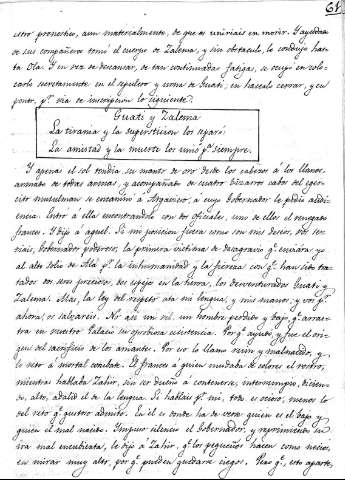 61
estro pronostico, aun materialmente, de que se uniriais en morir. Y ayudado
de sus compañeros tomó el cuerpo de Zalema, y sin obstaculo, lo condujo has-
ta Ola. Y en vez de descansar, de tan continuadas fatigas, se ocupó en colo-
carlo secretamente en el sepulcro y urna de Guati, en hacerlo cerrar, y en
poner, pr. via de inscripcion lo siguiente.
Guati y Zalema
La tirania y la supersticion los separó:
La amistad y la muerte los unió pa. siempre.
Y apenas el sol tendia su manto de oro desde los cabezos á los llanos,
armado de todas armas, y acompañado de cuatro bizarros cabos del eger-
cito musulman se encaminó á Argüineo, a cuyo Gobernador le pedia audi-
encia. Entró á ella encontrandolo con dos oficiales, uno de ellos el renegado
frances. Y dijo á aquel. Si mi posicion fuera como son mis deseos, vos ser-
iais, Gobernador poderoso, la primera victima de desagravio qe. enviára
al alto solio de Alá pr. la inhumanidad y la fiereza con qe. han sido tra-
tados dos seres preciosos, sus espejo en la tierra, los desventurados Guati y
Zalema. Mas, la ley del respeto ata mi lengua, y mis manos; y vos pr.
ahora, os salvareis. No asi un vil, un hombre perdido y bajo qe. arras-
tra en vuestro Palacio su oprobiosa existencia. Por qe. ayudó, y fue el ori-
gen del sacrificio de los amantes. Por eso lo llamo ruin y malnacido, y
lo reto á mortal combate. El frances á quien mudaba de colores el rostro,
mientras hablaba Zahir, sin ser dueño á contenerse, interrumpió, dicien-
do, alto, adalid de la lengua. Si hablais pr. mi, todo es ocioso, menos lo
del reto qe. gustoso admito. En él es donde ha de verse quien es el bajo y
quien el mal nacido. Impuso silencio el Gobernador, y reprimiendo su
ira mal encubierta, le dijo á Zahir, qe. los pequeños hacen como necios,
en mirar muy alto, por qe. pueden quedarse ciegos. Pero qe., esto aparte,